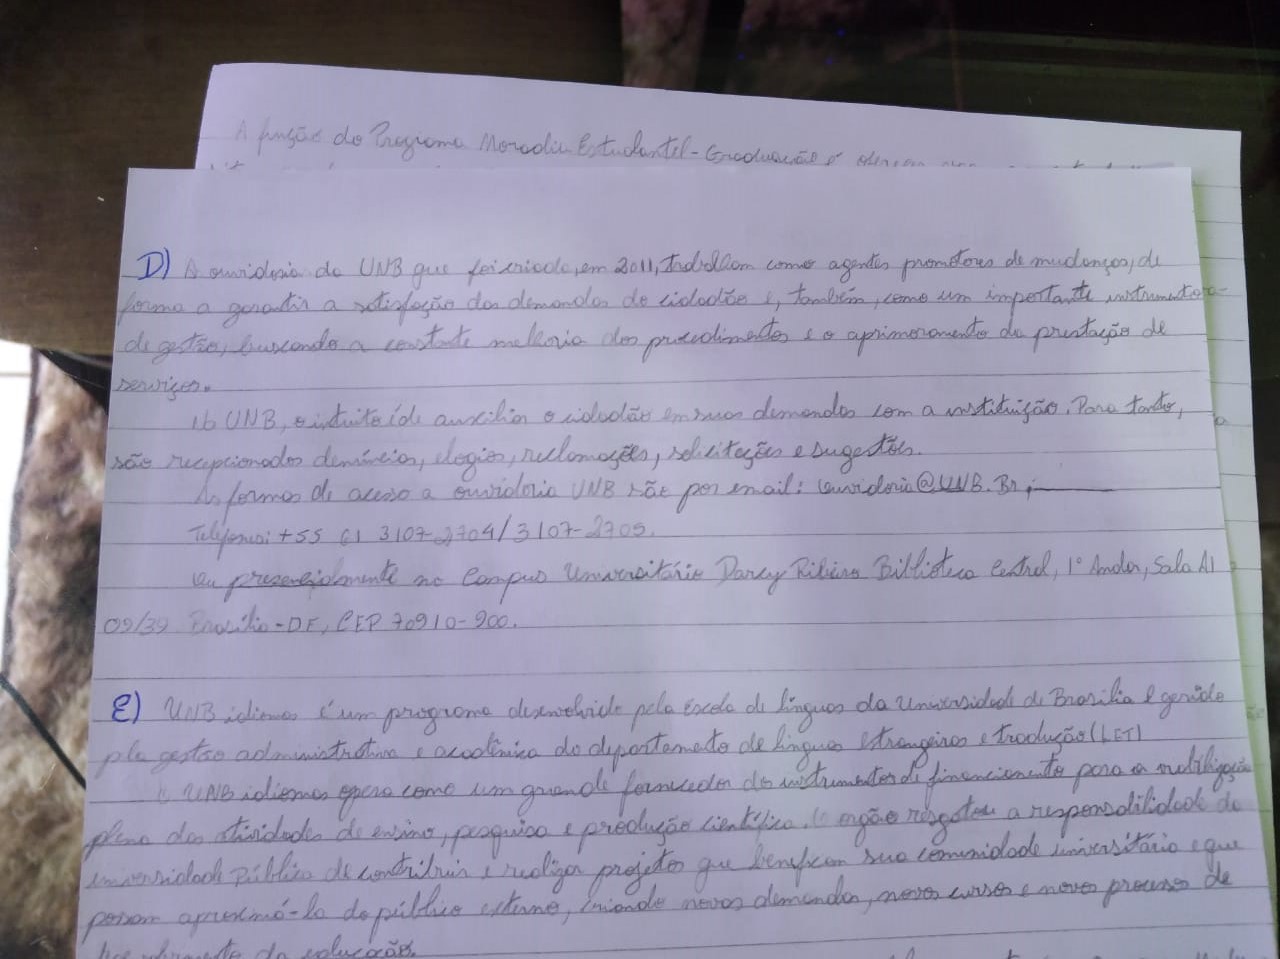 A função do Programa Moradia Estudantil-Graduação é
D) A ouvidoria da UNB que foi criada, em 2011, trabalham como agentes promotores de mudanças, de
forma a garantir a satisfação das demandas do cidadão e, também, como um importante instrumento
de gestão, buscando a constante melhoria dos procedimentos e o aprimoramento da prestação de
serviços.
UNB, o intuito é de auxiliar o cidadão em suas demandas com a instituição. Para tanto,
são recepcionados denúncias, elogios, reclamações, solicitações e sugestões.
As formas de acesso a ouvidoria UNB são por email: ouvidoria@UNB.Br;
Telefones: +55 61 3107-2704/3107-2705.
Ou presencialmente no Campus Universitário Darcy Ribeiro Biblioteca Central, 1º Andar, Sala A1
09/39 Brasília-DF, CEP 70910-900.
E) UNB idiomas é um programa desenvolvido pela Escola de línguas da Universidade de Brasília e gerido
pla gestão administrativa e acadêmica do departamento de línguas estrangeiras e tradução (LET)
O UNB idiomas opera como um grande fornecedor dos instrumentos de financiamento para a
plena das atividades de ensino, pesquisa e produção científica. O orgão resgatou a responsabilidade da
universidade Pública de contribuir e realizar projetos que beneficiam sua comunidade universitária e que
possam aproximá-la do público externo, criando novas demandas, novos cursos e novos processos de
da educação.